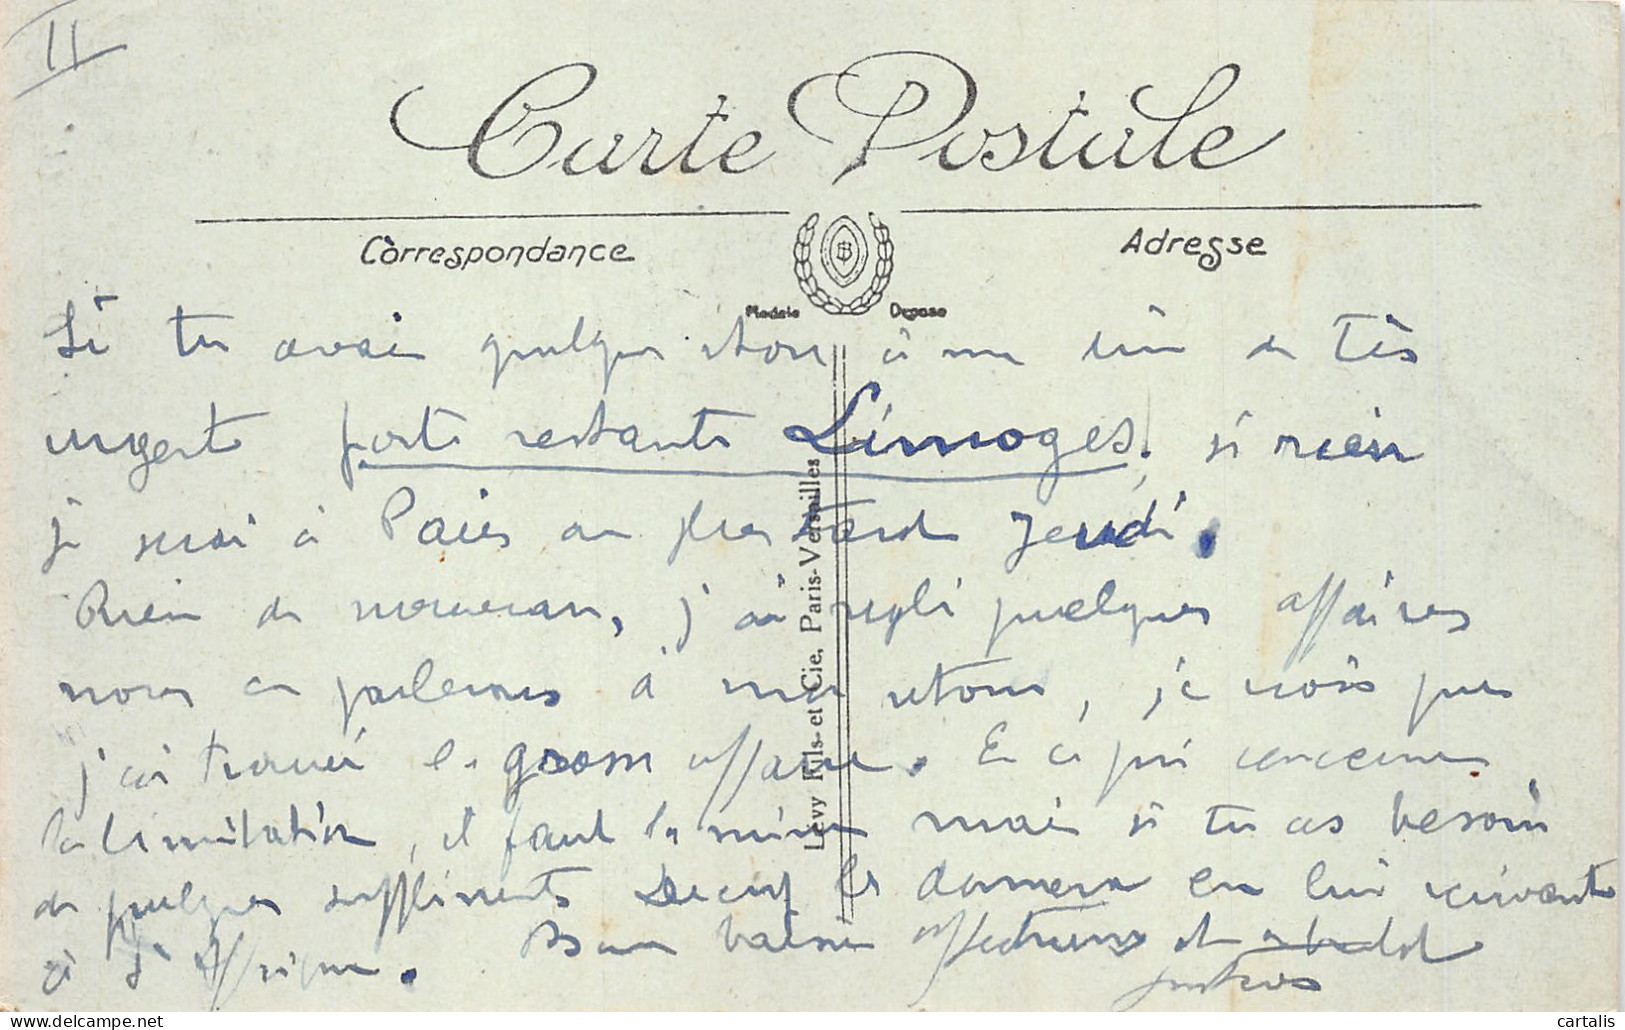 II
Carte Postale
Correspondance
Adresse
Modele Depose
Si tu avais quelque chose à me dire de très
urgent poste restante Limoges, si rien
je serai à Paris au plus tard Jeudi.
Rien de nouveau, j'ai réglé quelques affaires
nous en parlerons à mon retour, je crois que
j'ai trouvé la grosse affaire. En ce qui concerne
la limitation, il faut la même mais si tu as besoin
de quelques suppléments Decuq les donnera en lui écrivant
à l'Afrique. Bons baisers affectueux et
Lévy Fils et Cie, Paris-Versailles
cartalis